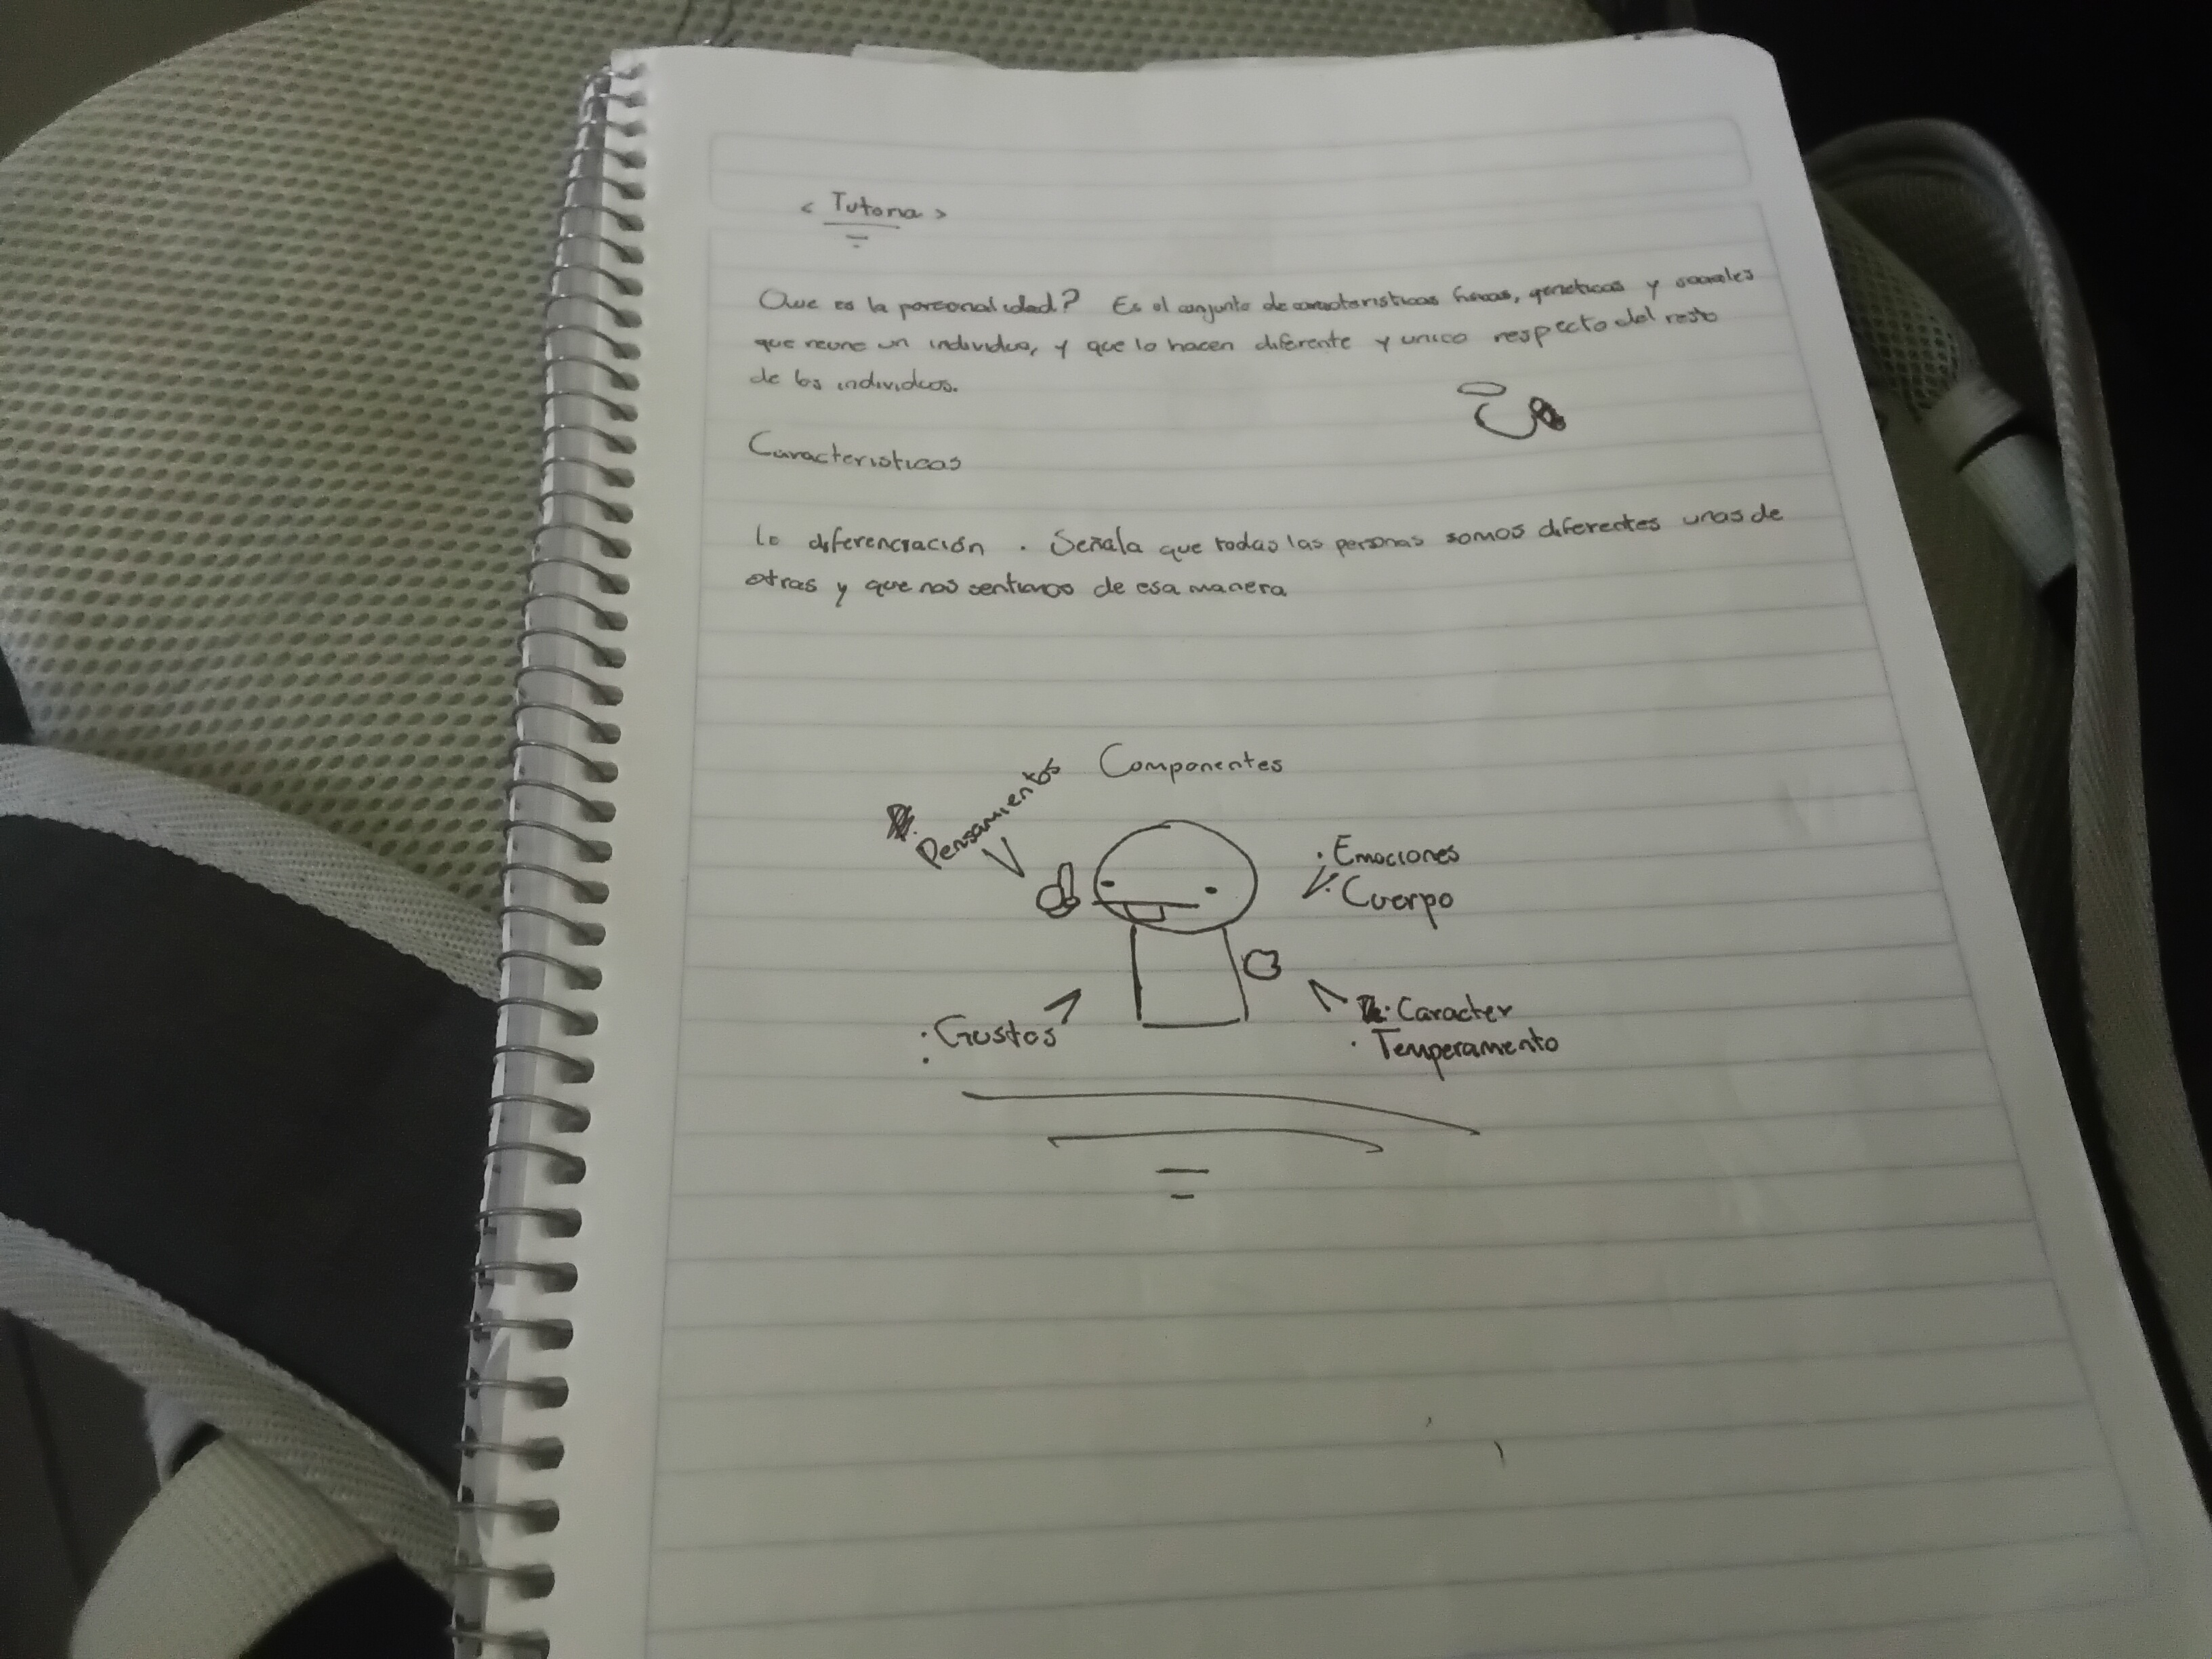 < Tutoria >
Que es la personalidad? Es el conjunto de caracteristicas fisicas, geneticas y sociales
que reune un individuo, y que lo hacen diferente y unico respecto del resto
de los individuos.
Caracteristicas
la diferenciación . Señala que todas las personas somos diferentes unas de
otras y que nos sentimos de esa manera
Componentes
Pensamientos
· Emociones
· Cuerpo
: Gustos
· Caracter
· Temperamento